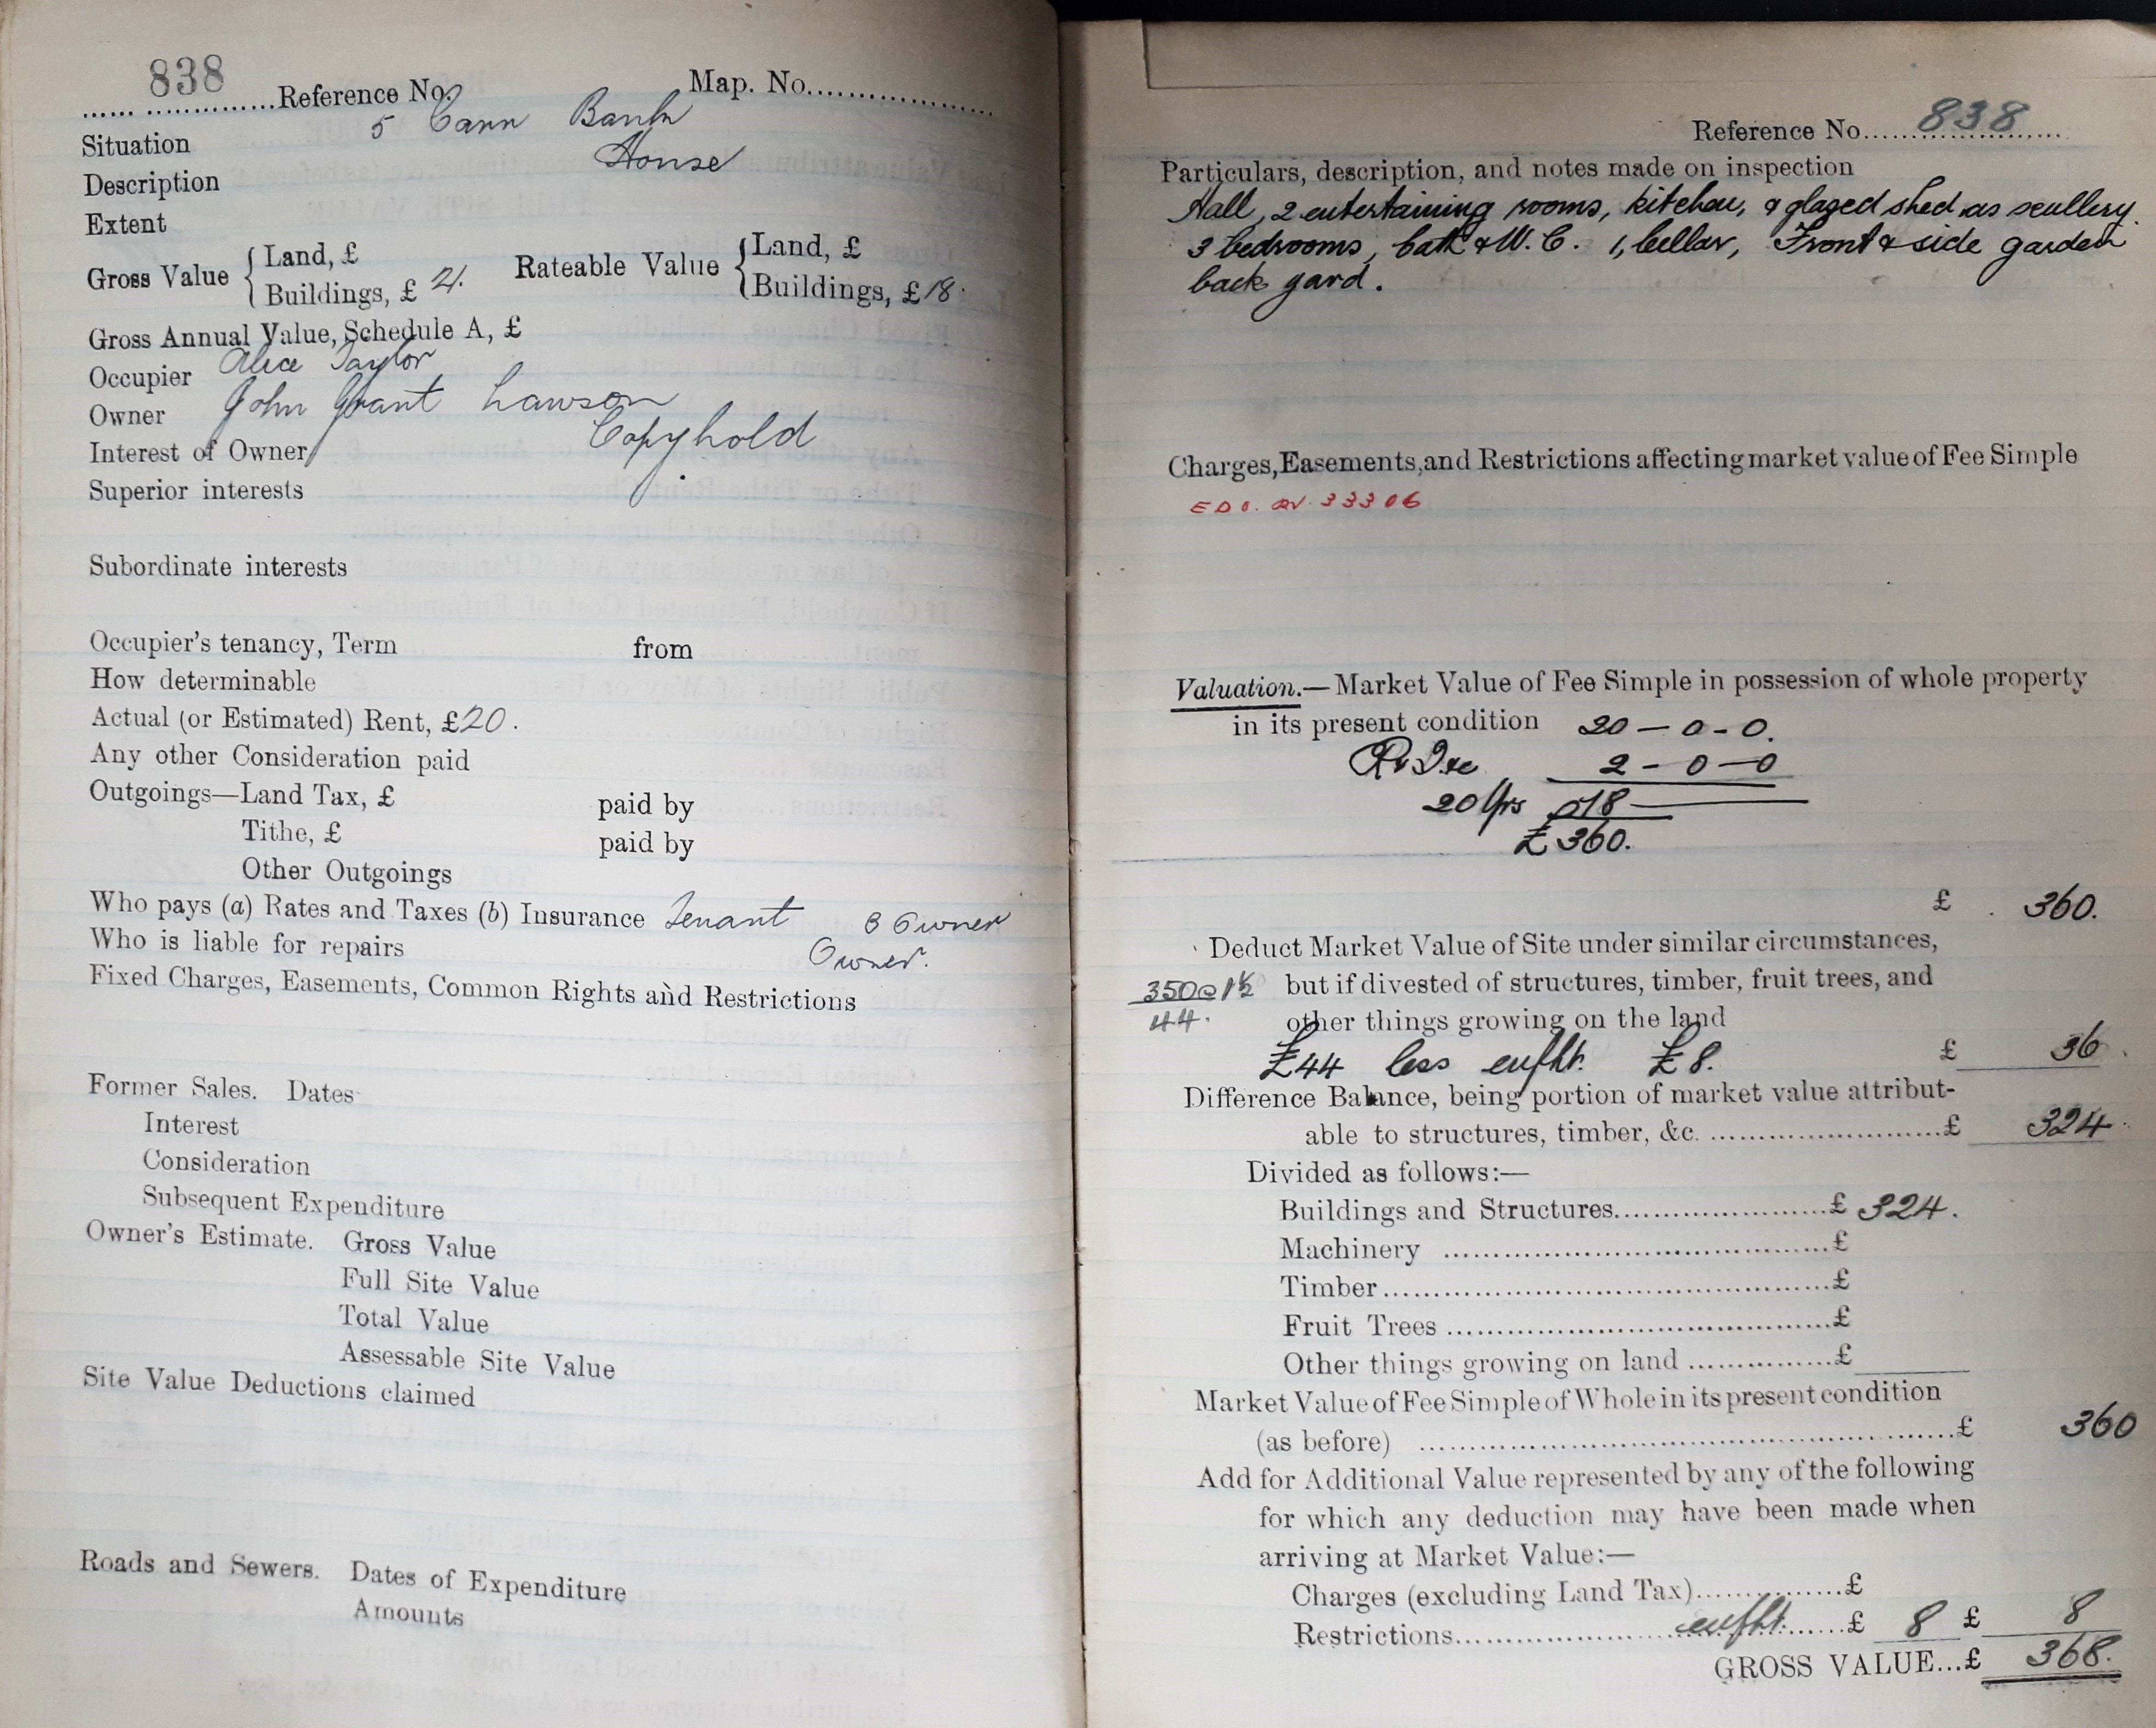 838
Reference No. Map. No.
Situation 5 Carr Bank
Description House
Extent
Gross Value { Land, £ Rateable Value { Land, £
Buildings, £ 21. Buildings, £ 18.
Gross Annual Value, Schedule A, £
Occupier Alice Taylor
Owner John Grant Lawson
Interest of Owner Copyhold
Superior interests
Subordinate interests
Occupier's tenancy, Term from
How determinable
Actual (or Estimated) Rent, £20.
Any other Consideration paid
Outgoings—Land Tax, £ paid by
Tithe, £ paid by
Other Outgoings
Who pays (a) Rates and Taxes (b) Insurance Tenant B Owner
Who is liable for repairs Owner.
Fixed Charges, Easements, Common Rights and Restrictions
Former Sales. Dates
Interest
Consideration
Subsequent Expenditure
Owner's Estimate. Gross Value
Full Site Value
Total Value
Assessable Site Value
Site Value Deductions claimed
Roads and Sewers. Dates of Expenditure
Amounts
Reference No. 838
Particulars, description, and notes made on inspection
Hall, 2 entertaining rooms, kitchen, & glazed shed as scullery.
3 bedrooms, bath & W.C. 1, cellar, Front & side garden
back yard.
Charges, Easements, and Restrictions affecting market value of Fee Simple
33306
Valuation.—Market Value of Fee Simple in possession of whole property
in its present condition 20-0-0.
2-0-0
20 Yrs 18
£360.
£ 360.
Deduct Market Value of Site under similar circumstances,
350@1½ but if divested of structures, timber, fruit trees, and
44. other things growing on the land
£44 less enfht. £8. £ 36
Difference Balance, being portion of market value attribut-
able to structures, timber, &c. £ 324
Divided as follows:—
Buildings and Structures £ 324.
Machinery £
Timber £
Fruit Trees £
Other things growing on land £
Market Value of Fee Simple of Whole in its present condition
(as before) £ 360
Add for Additional Value represented by any of the following
for which any deduction may have been made when
arriving at Market Value:—
Charges (excluding Land Tax) £
Restrictions enfht. £ 8 £ 8
GROSS VALUE...£ 368.